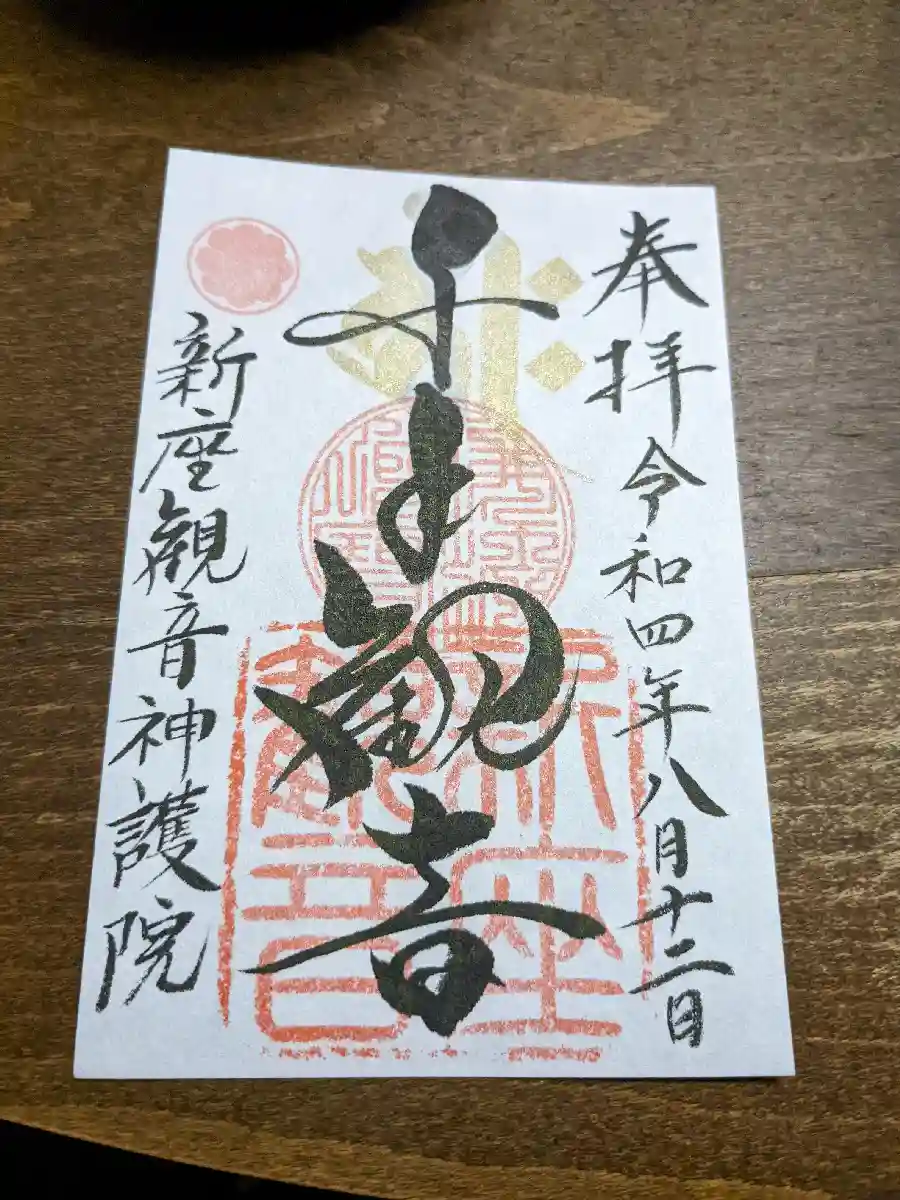 奉拝 令和四年八月十二日
千手観音
新座観音神護院
新座観音